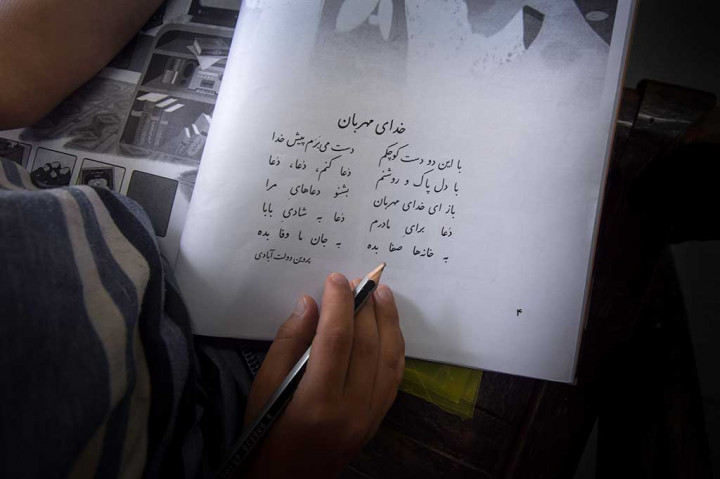 خدای مهربان
با این دو دست کوچکم دست می‌بَرَم پیش خدا
با دل پاک و روشنم دُعا کنم، دُعا، دُعا
باز ای خدای مهربان بشنو دعاهایِ مرا
دُعا برایِ مادرم دُعا به شادیِ بابا
به خانه‌ها صفا بده به جان ما وفا بده
پروین دولت آبادی
۴